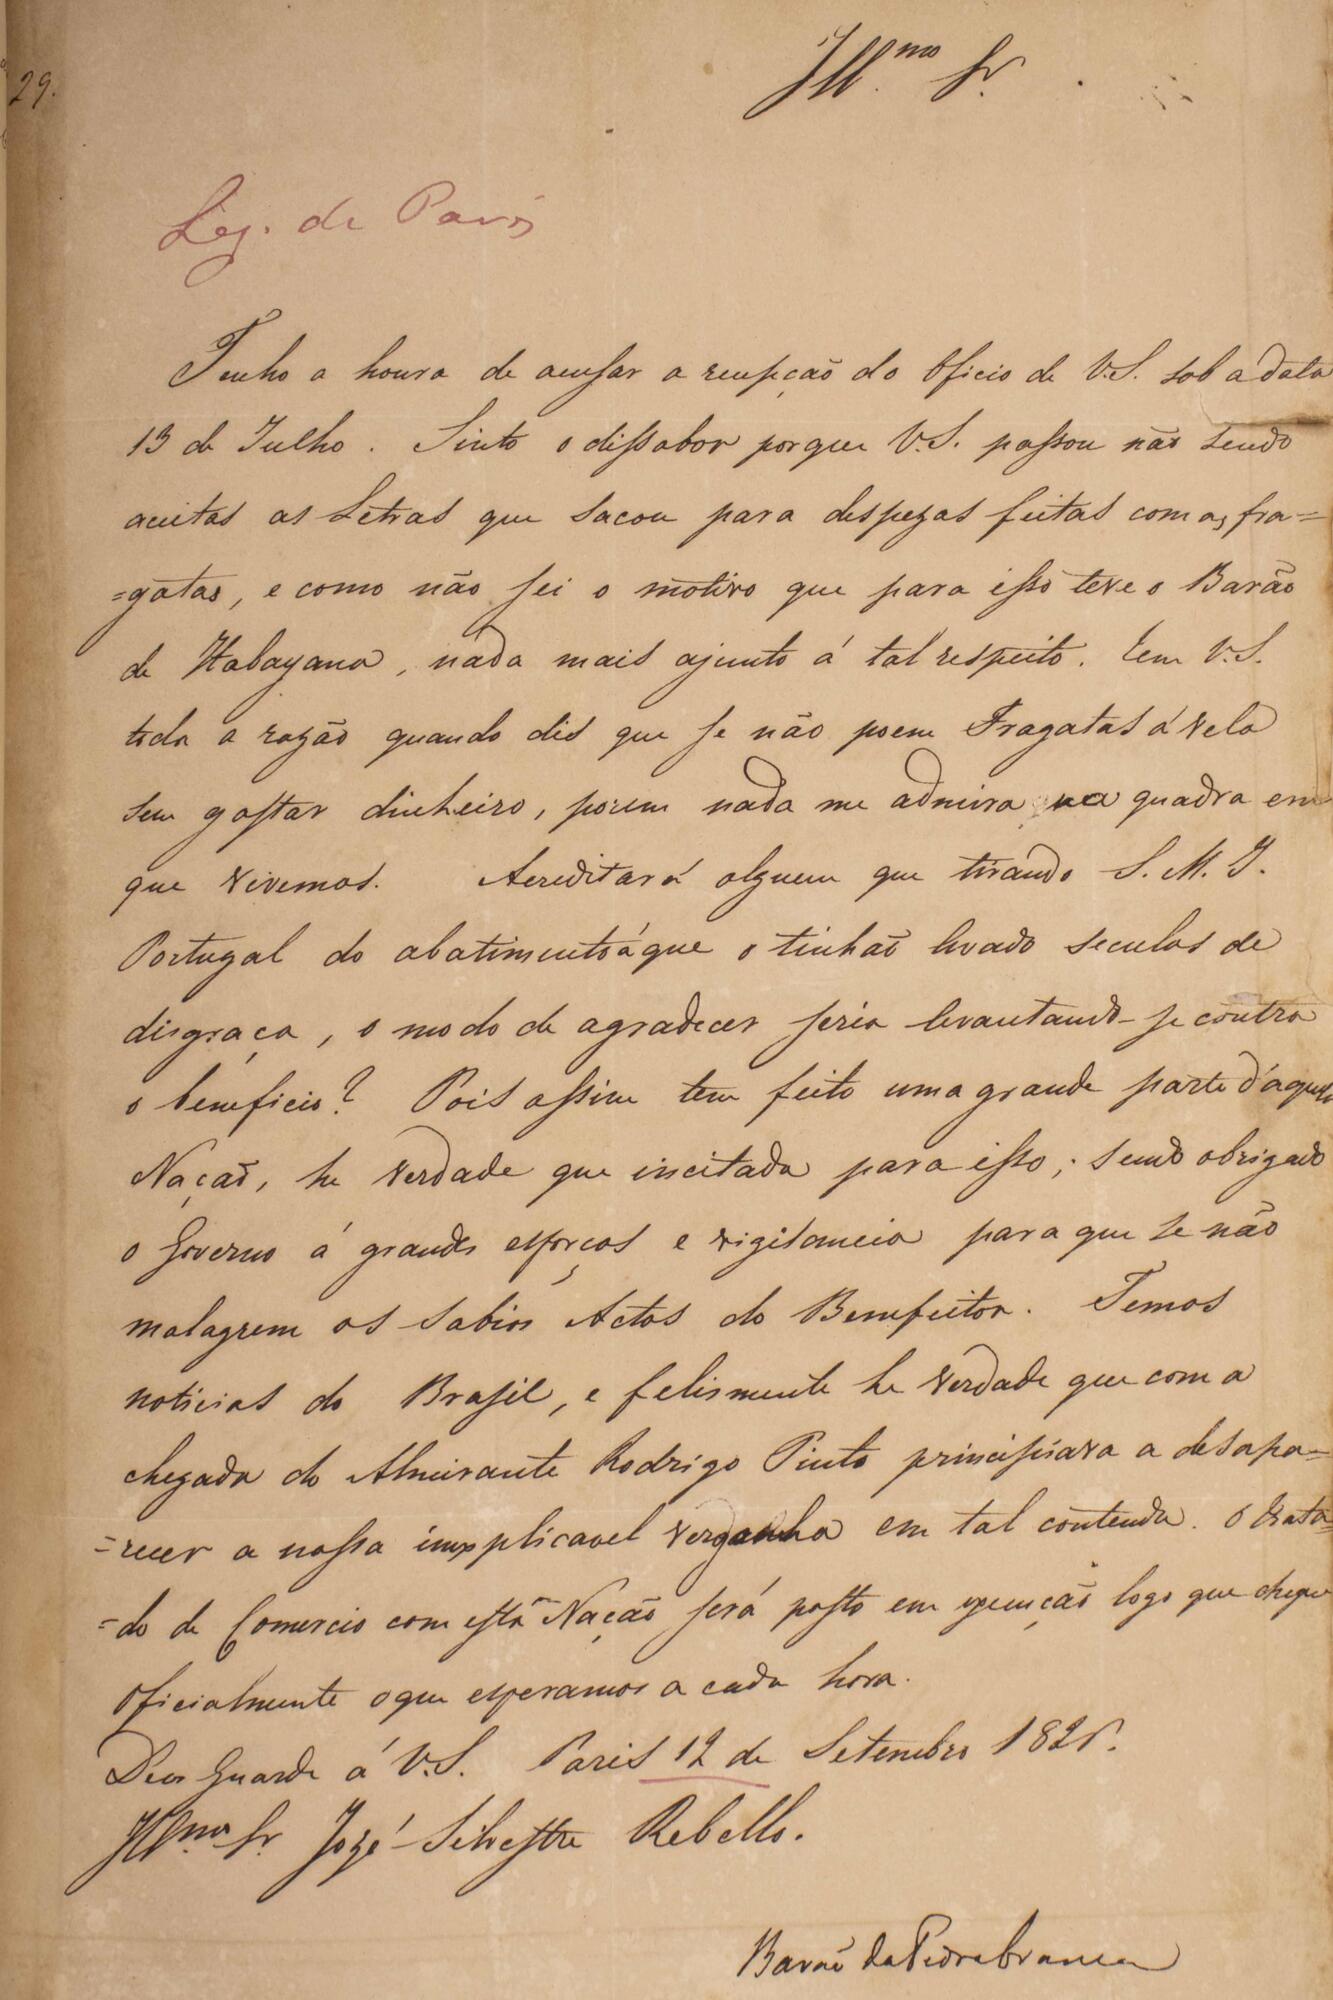 29.
Ill.mo Sr.
Leg. de Paris
Tenho a honra de acusar a recepção do Oficio de V.S. sob a data
13 de Julho. Sinto o dissabor porque V.S. passou não sendo
aceitas as Letras que sacou para despezas feitas com as fra=
=gatas, e como não sei o motivo que para isso teve o Barão
de Itabayana, nada mais ajunto á tal respeito. Tem V.S.
toda a razão quando dis que se não poem Fragatas á vela
sem gastar dinheiro, porem nada me admira na quadra em
que vivemos. Acreditará alguem que tirando S.M.I.
Portugal do abatimento á que o tinhão levado seculos de
disgraça, o modo de agradecer seria levantando-se contra
o beneficio? Pois assim tem feito uma grande parte d'aquela
Nação, he verdade que incitada para isso; sendo obrigado
o Governo á grandes esforços e vigilancia para que se não
malagrem os sabios Actos do Benefeitor. Temos
noticias do Brasil, e felismente he verdade que com a
chegada do Almirante Rodrigo Pinto principiara a desapa=
=recer a nossa inexplicavel vergonha em tal contenda. O Trata=
=do de Comercio com esta Nação será posto em execução logo que chegue
Oficialmente o que esperamos a cada hora.
Deos Guarde á V.S. Paris 12 de Setembro 1826.
Ill.mo Sr. Jozé Silvestre Rebello.
Barão da Pedra branca